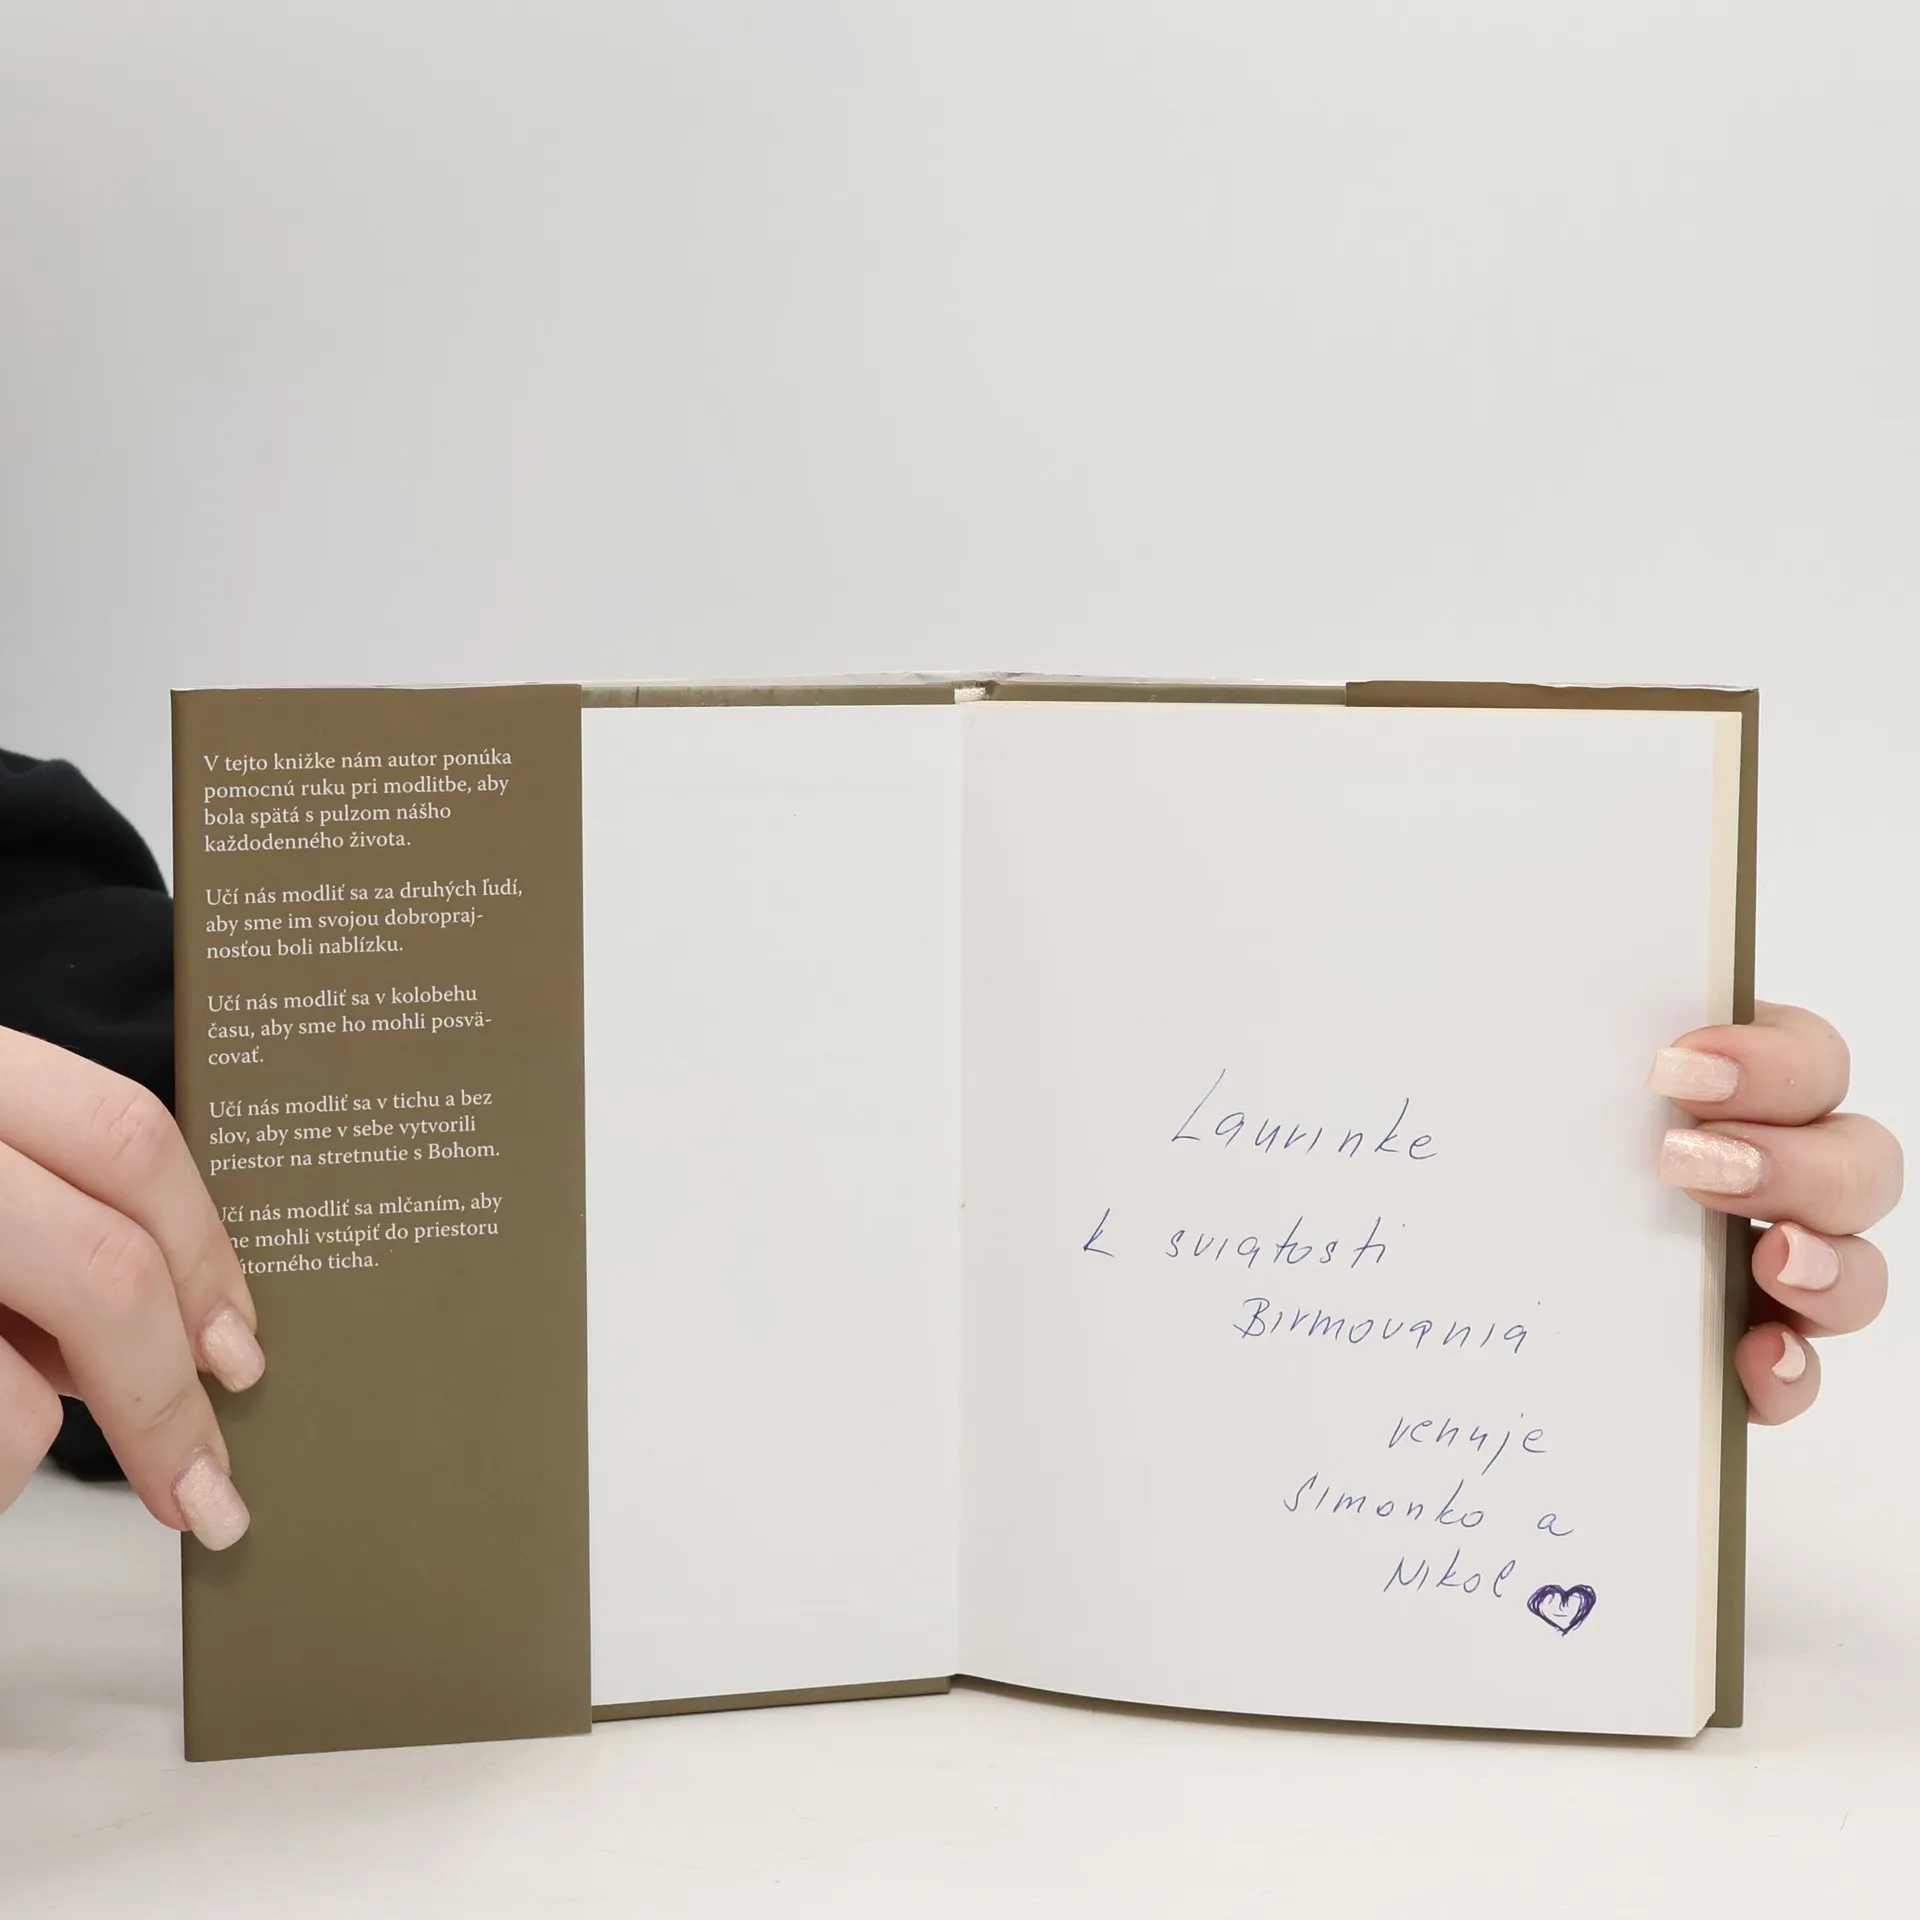 V tejto knižke nám autor ponúka
pomocnú ruku pri modlitbe, aby
bola spätá s pulzom nášho
každodenného života.
Učí nás modliť sa za druhých ľudí,
aby sme im svojou dobropraj-
nosťou boli nablízku.
Učí nás modliť sa v kolobehu
času, aby sme ho mohli posvä-
covať.
Učí nás modliť sa v tichu a bez
slov, aby sme v sebe vytvorili
priestor na stretnutie s Bohom.
Učí nás modliť sa mlčaním, aby
mohli vstúpiť do priestoru
ticha.
Laurinke
k sviatosti
Birmovania
venuje
Simonko a
Nikol